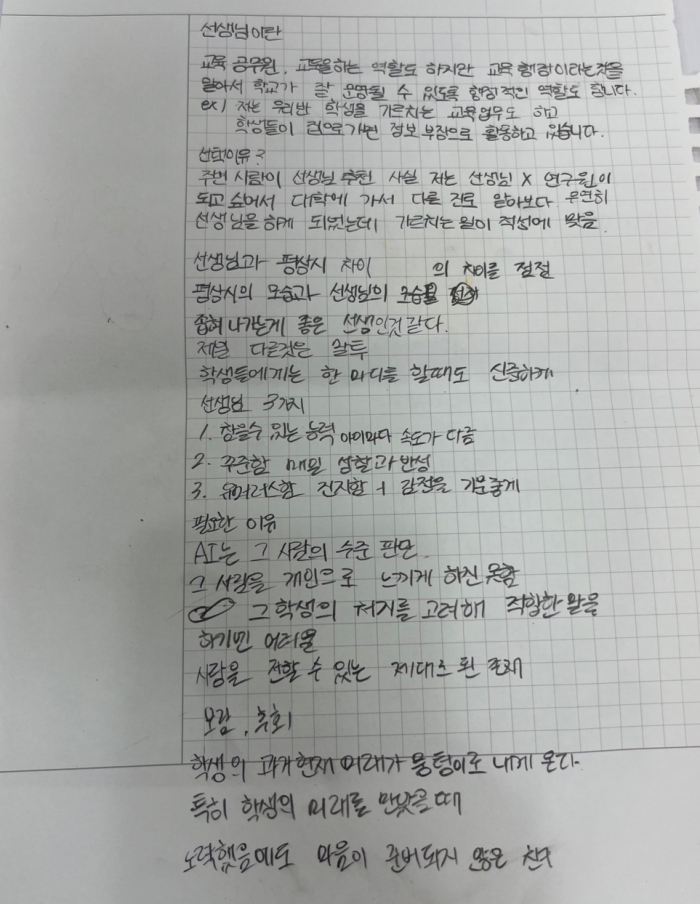 선생님이란
교육 공무원. 교육을하는 역할도 하지만 교육 행정이라는것을
알아서 학교가 잘 운영될 수 있도록 행정적인 역할도 합니다.
ex) 저는 우리반 학생을 가르치는 교육업무도 하고
학생들이 컴으로가면 정보 부장으로 활동하고 있습니다.
선택이유?
주변 사람이 선생님 추천 사실 저는 선생님 X 연구원이
되고 싶어서 대학에 가서 다른 진로 알아보다 우연히
선생님을하게 되었는데 가르치는 일이 적성에 맞음
선생님과 평상시 차이 의 차이를 점점
평상시의 모습과 선생님의 모습을
좁혀나가는게 좋은 선생인것같다.
제일 다른것은 말투
학생들에게는 한 마디를 할때도 신중하게
선생님 3가지
1. 참을수 있는 능력 아이마다 속도가 다름
2. 꾸준함 매일 성찰과 반성
3. 유머러스함 진지함 + 감정을 기분좋게
필요한 이유
AI는 그 사람의 수준 판단
그 사람을 개인으로 느끼게 하진 못함
그 학생의 처지를 고려해 적합한 말을
하기엔 어려움
사랑을 전할 수 있는 제대로 된 존재
보람, 후회
학생의 과거현재 미래가 뭉텅이로 내게 온다.
특히 학생의 미래를 만났을때
노력했음에도 마음이 준비되지 않은 친구